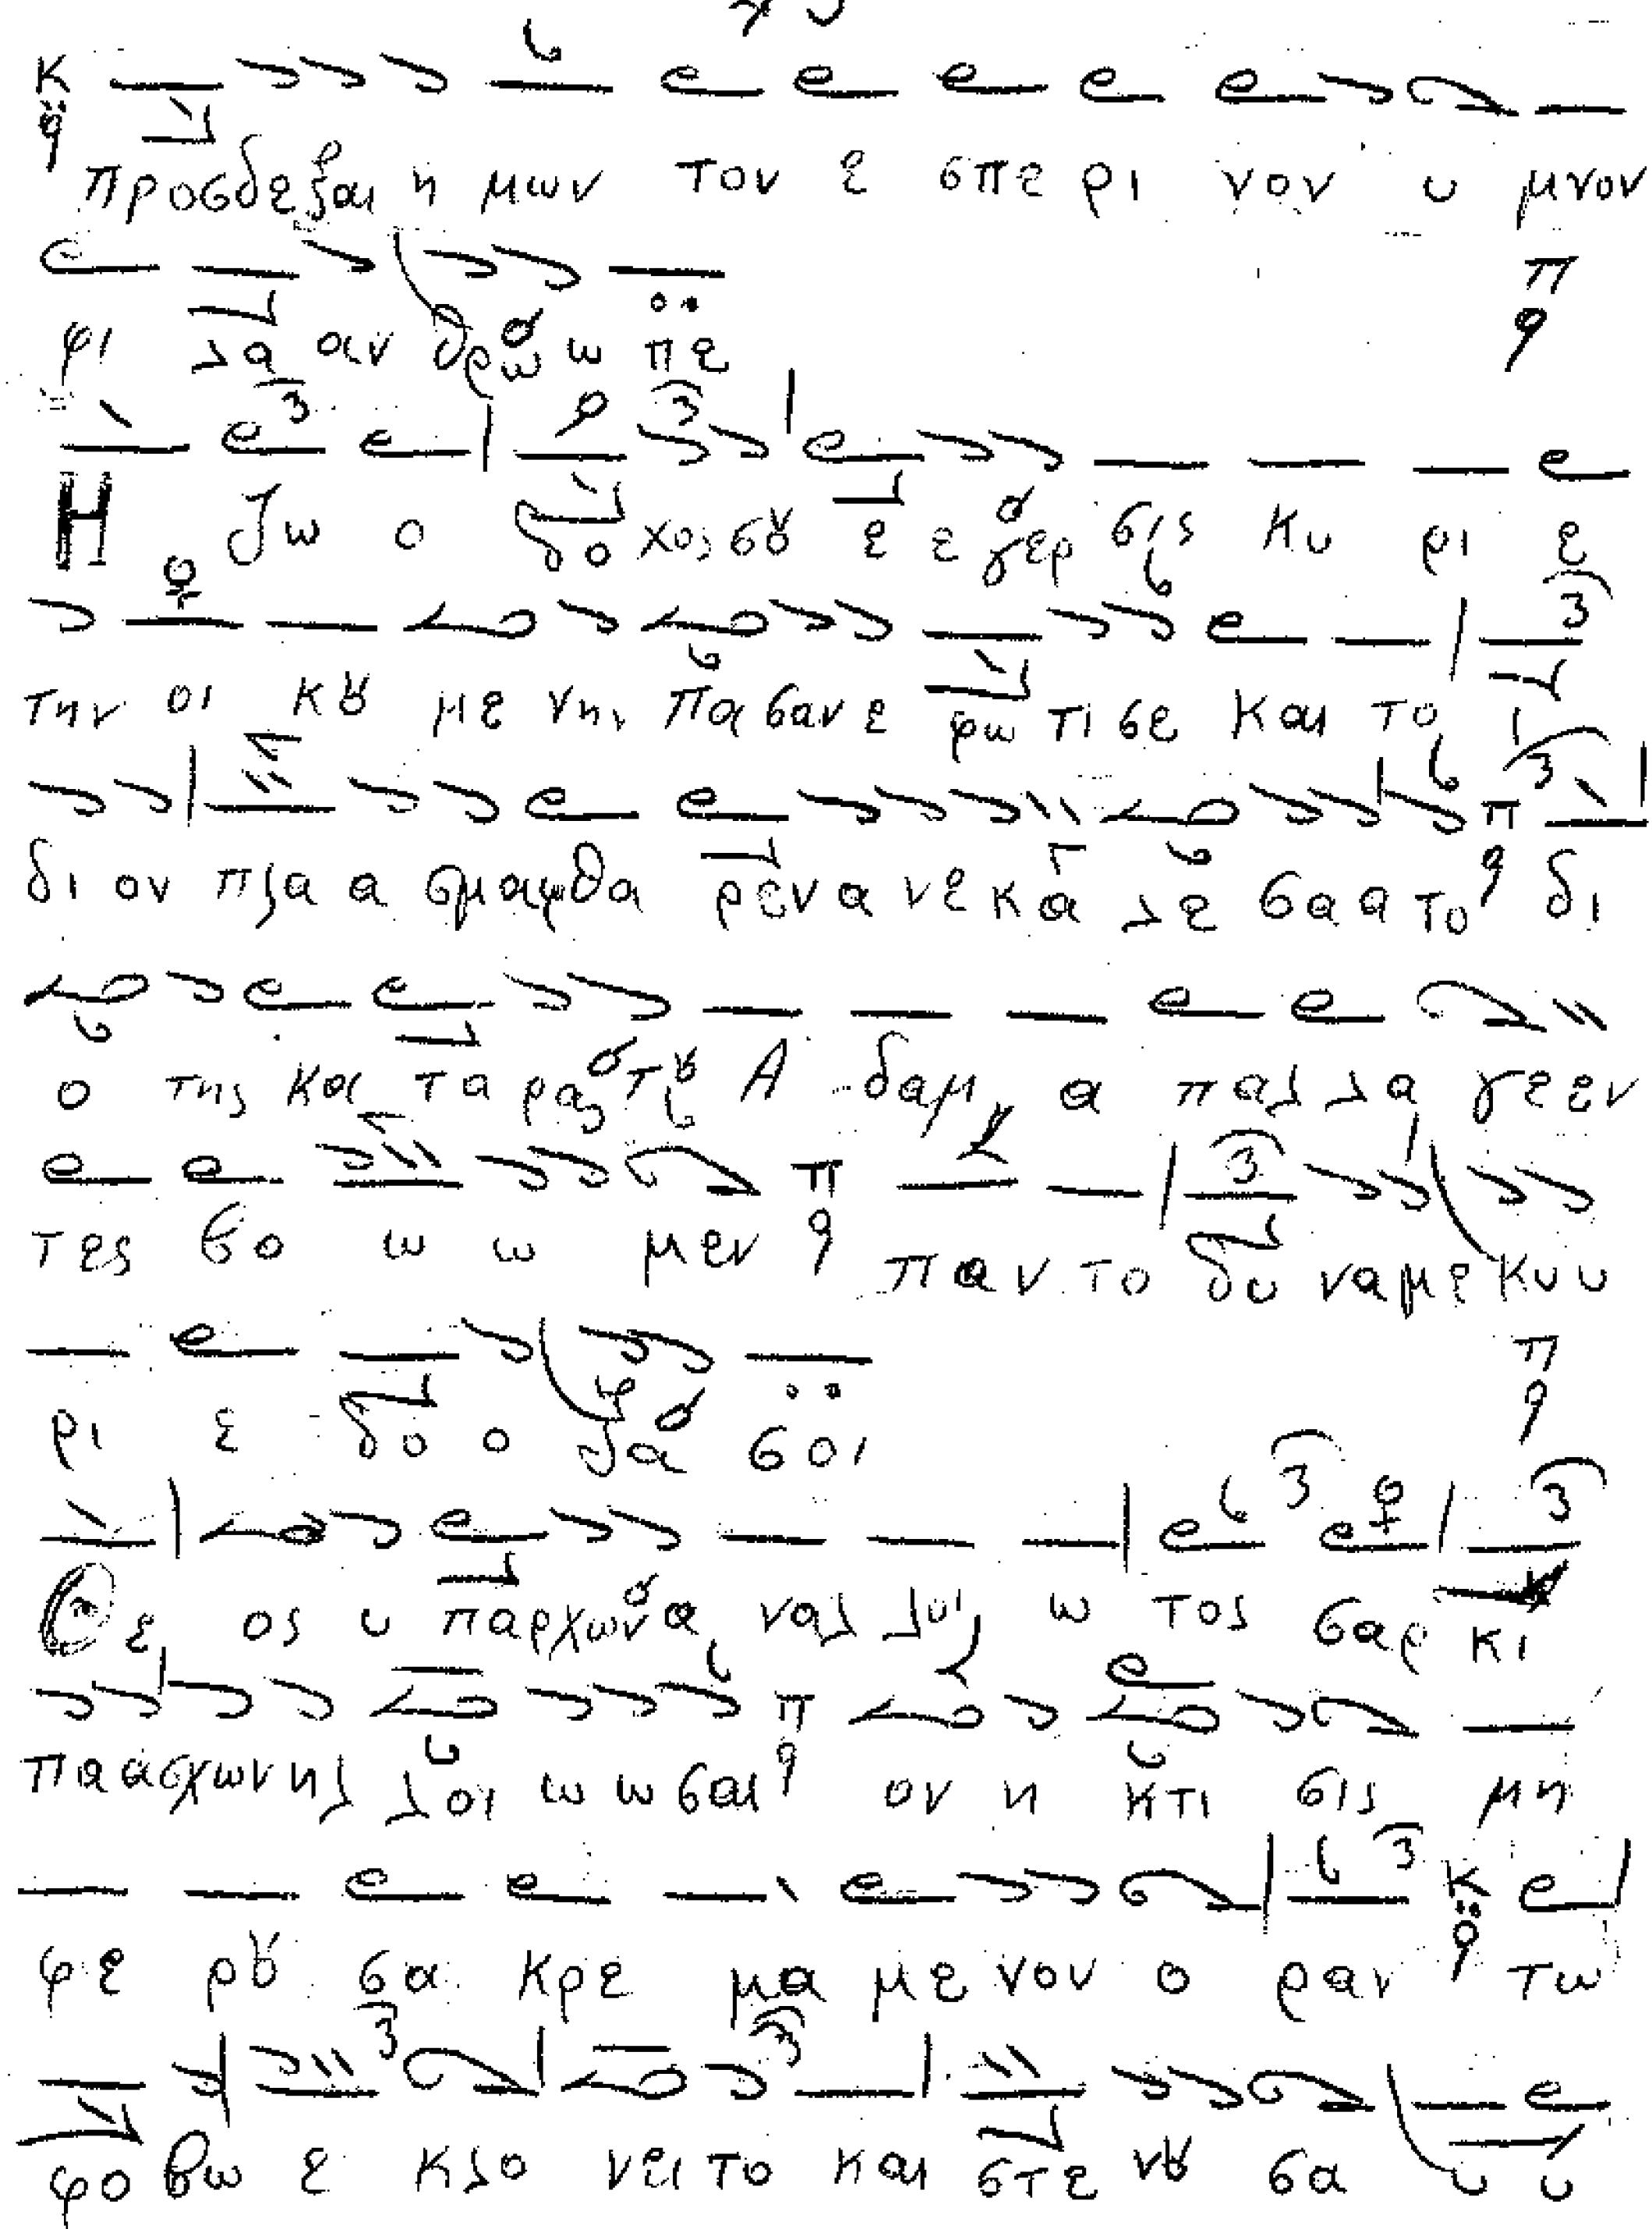 προσδεξαι η μων τον ε σπε ρι νον υ μνον
φι λα αν θρω ω πε
Η ζω ο δο χος σȣ ε ε γερ σις Κυ ρι ε
την οι κȣ με νην πα σαν ε φω τι σε και το ι
δι ον πλα α σμα φθα ρεν α νε κα λε σα α το δι
ο της κα τα ρας τȣ Α δαμ α παλ λα γε εν
τες βο ω ω μεν παν το δυ να με Κυ υ
ρι ε δο ο ξα σοι
Θε ος υ παρ χων α ναλ λοι ω τος σαρ κι
πα α σχων ηλ λοι ω ω σαι ον η κτι σις μη
φε ρȣ σα κρε μα με νον ο ραν τω
φο βω ε κλο νει το και στε νȣ σα υ υ